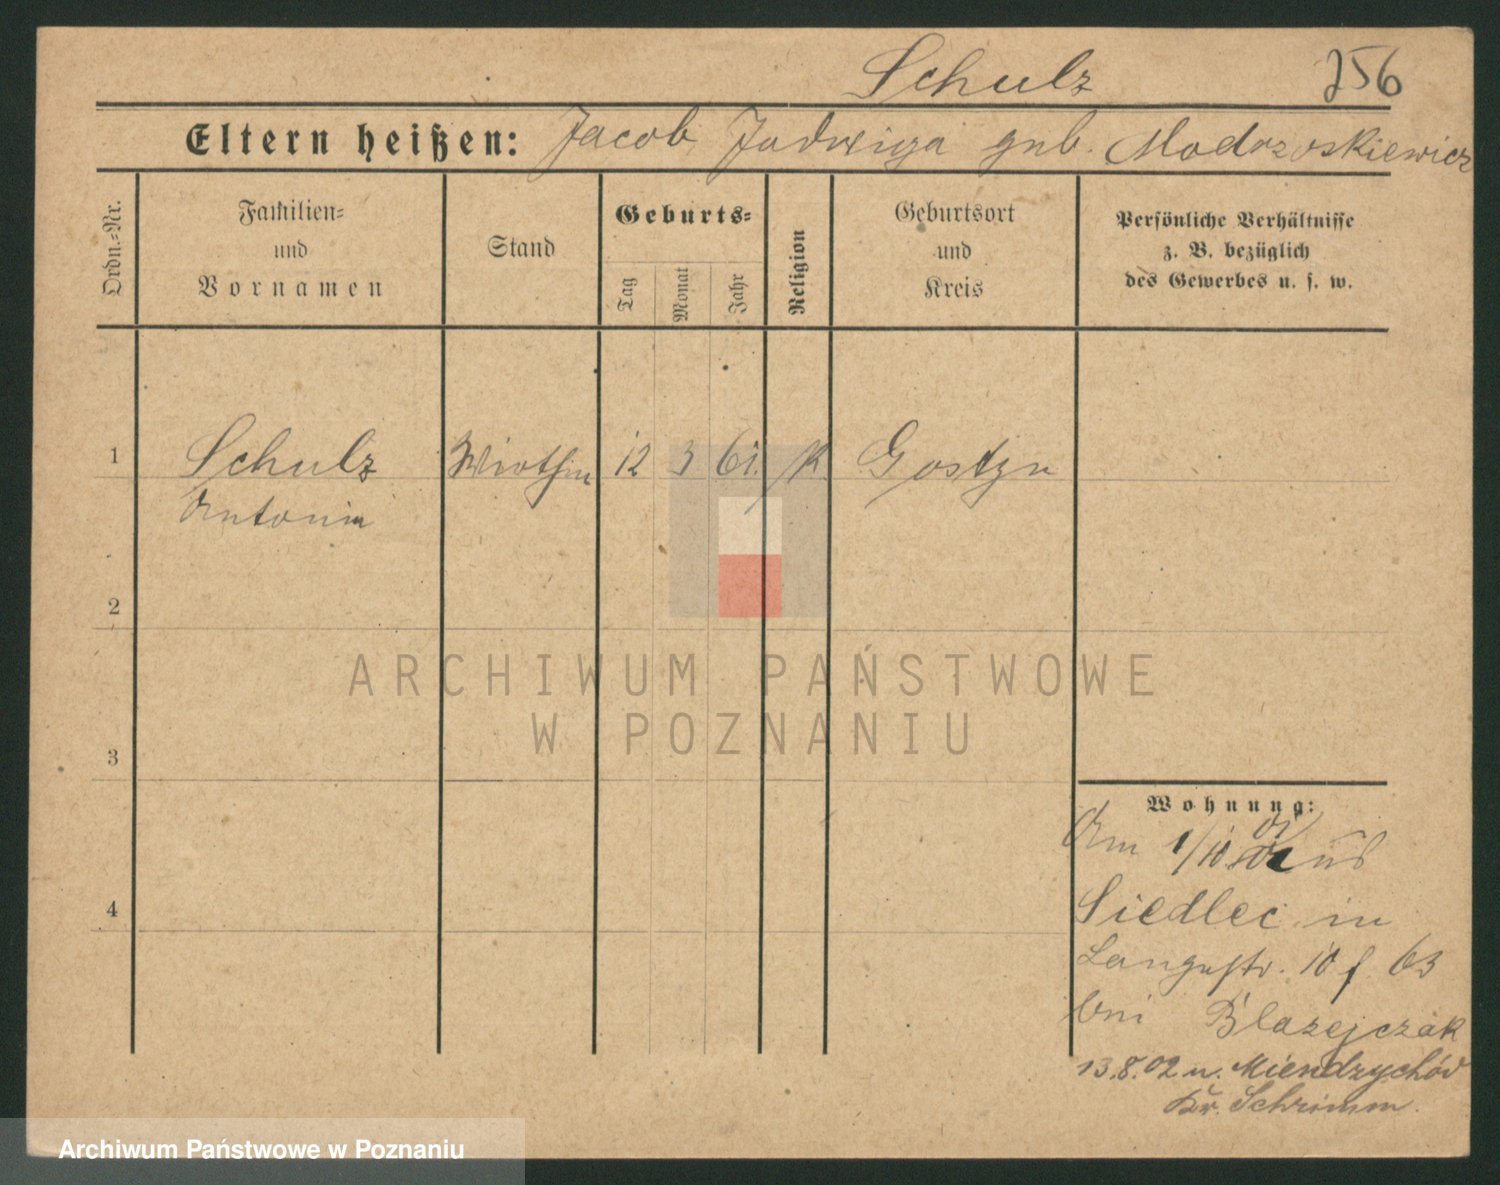 Schulz 256
Eltern heißen: Jacob Jadwiga geb. Modrzoskiewicz
Ordn.=Nr.
Familien=
und
Vornamen
Stand
Geburts=
Tag
Monat
Jahr
Religion
Geburtsort
und
Kreis
Persönliche Verhältnisse
z. B. bezüglich
des Gewerbes u. s. w.
1 Schulz Wirthin 12 3 61. K. Gostyn
Antonin
2
3
4
Wohnung:
Am 1/10 01 aus
Siedlec in
Langestr. 10 f 63
bei Błazejczak
13.8.02 n. Miendzychód
Kr. Schrimm.
ARCHIWUM PAŃSTWOWE
W POZNANIU
Archiwum Państwowe w Poznaniu